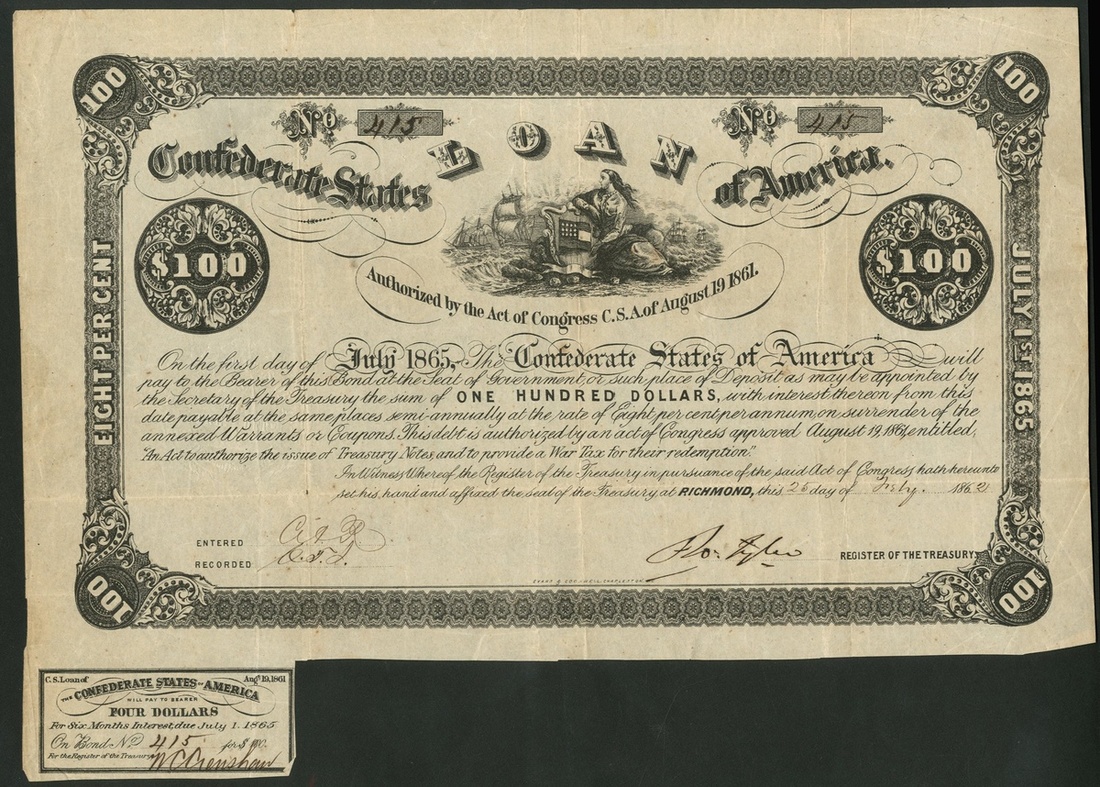 100
100
No 415
No 415
LOAN
Confederate States
of America.
$100
$100
Authorized by the Act of Congress C.S.A. of August 19 1861.
EIGHT PER CENT
JULY 1ST 1865
On the first day of July 1865, The Confederate States of America will
pay to the Bearer of this Bond at the Seat of Government, or such place of Deposit as may be appointed by
the Secretary of the Treasury the sum of ONE HUNDRED DOLLARS, with interest thereon from this
date payable at the same places semi-annually at the rate of Eight per cent per annum, on surrender of the
annexed Warrants or Coupons. This debt is authorized by an act of Congress approved August 19, 1861, entitled,
"An Act to authorize the issue of Treasury Notes, and to provide a War Tax for their redemption."
In Witness Whereof the Register of the Treasury in pursuance of the said Act of Congress, hath hereunto
set his hand and affixed the seal of the Treasury at RICHMOND, this 25 day of July 1862
ENTERED
RECORDED
Ro. Tyler
REGISTER OF THE TREASURY
100
100
C.S. Loan of Augt 19, 1861
THE CONFEDERATE STATES OF AMERICA
WILL PAY TO BEARER
FOUR DOLLARS
For Six Months Interest, due July 1. 1865
On Bond No 415 for $100.
For the Register of the Treasury